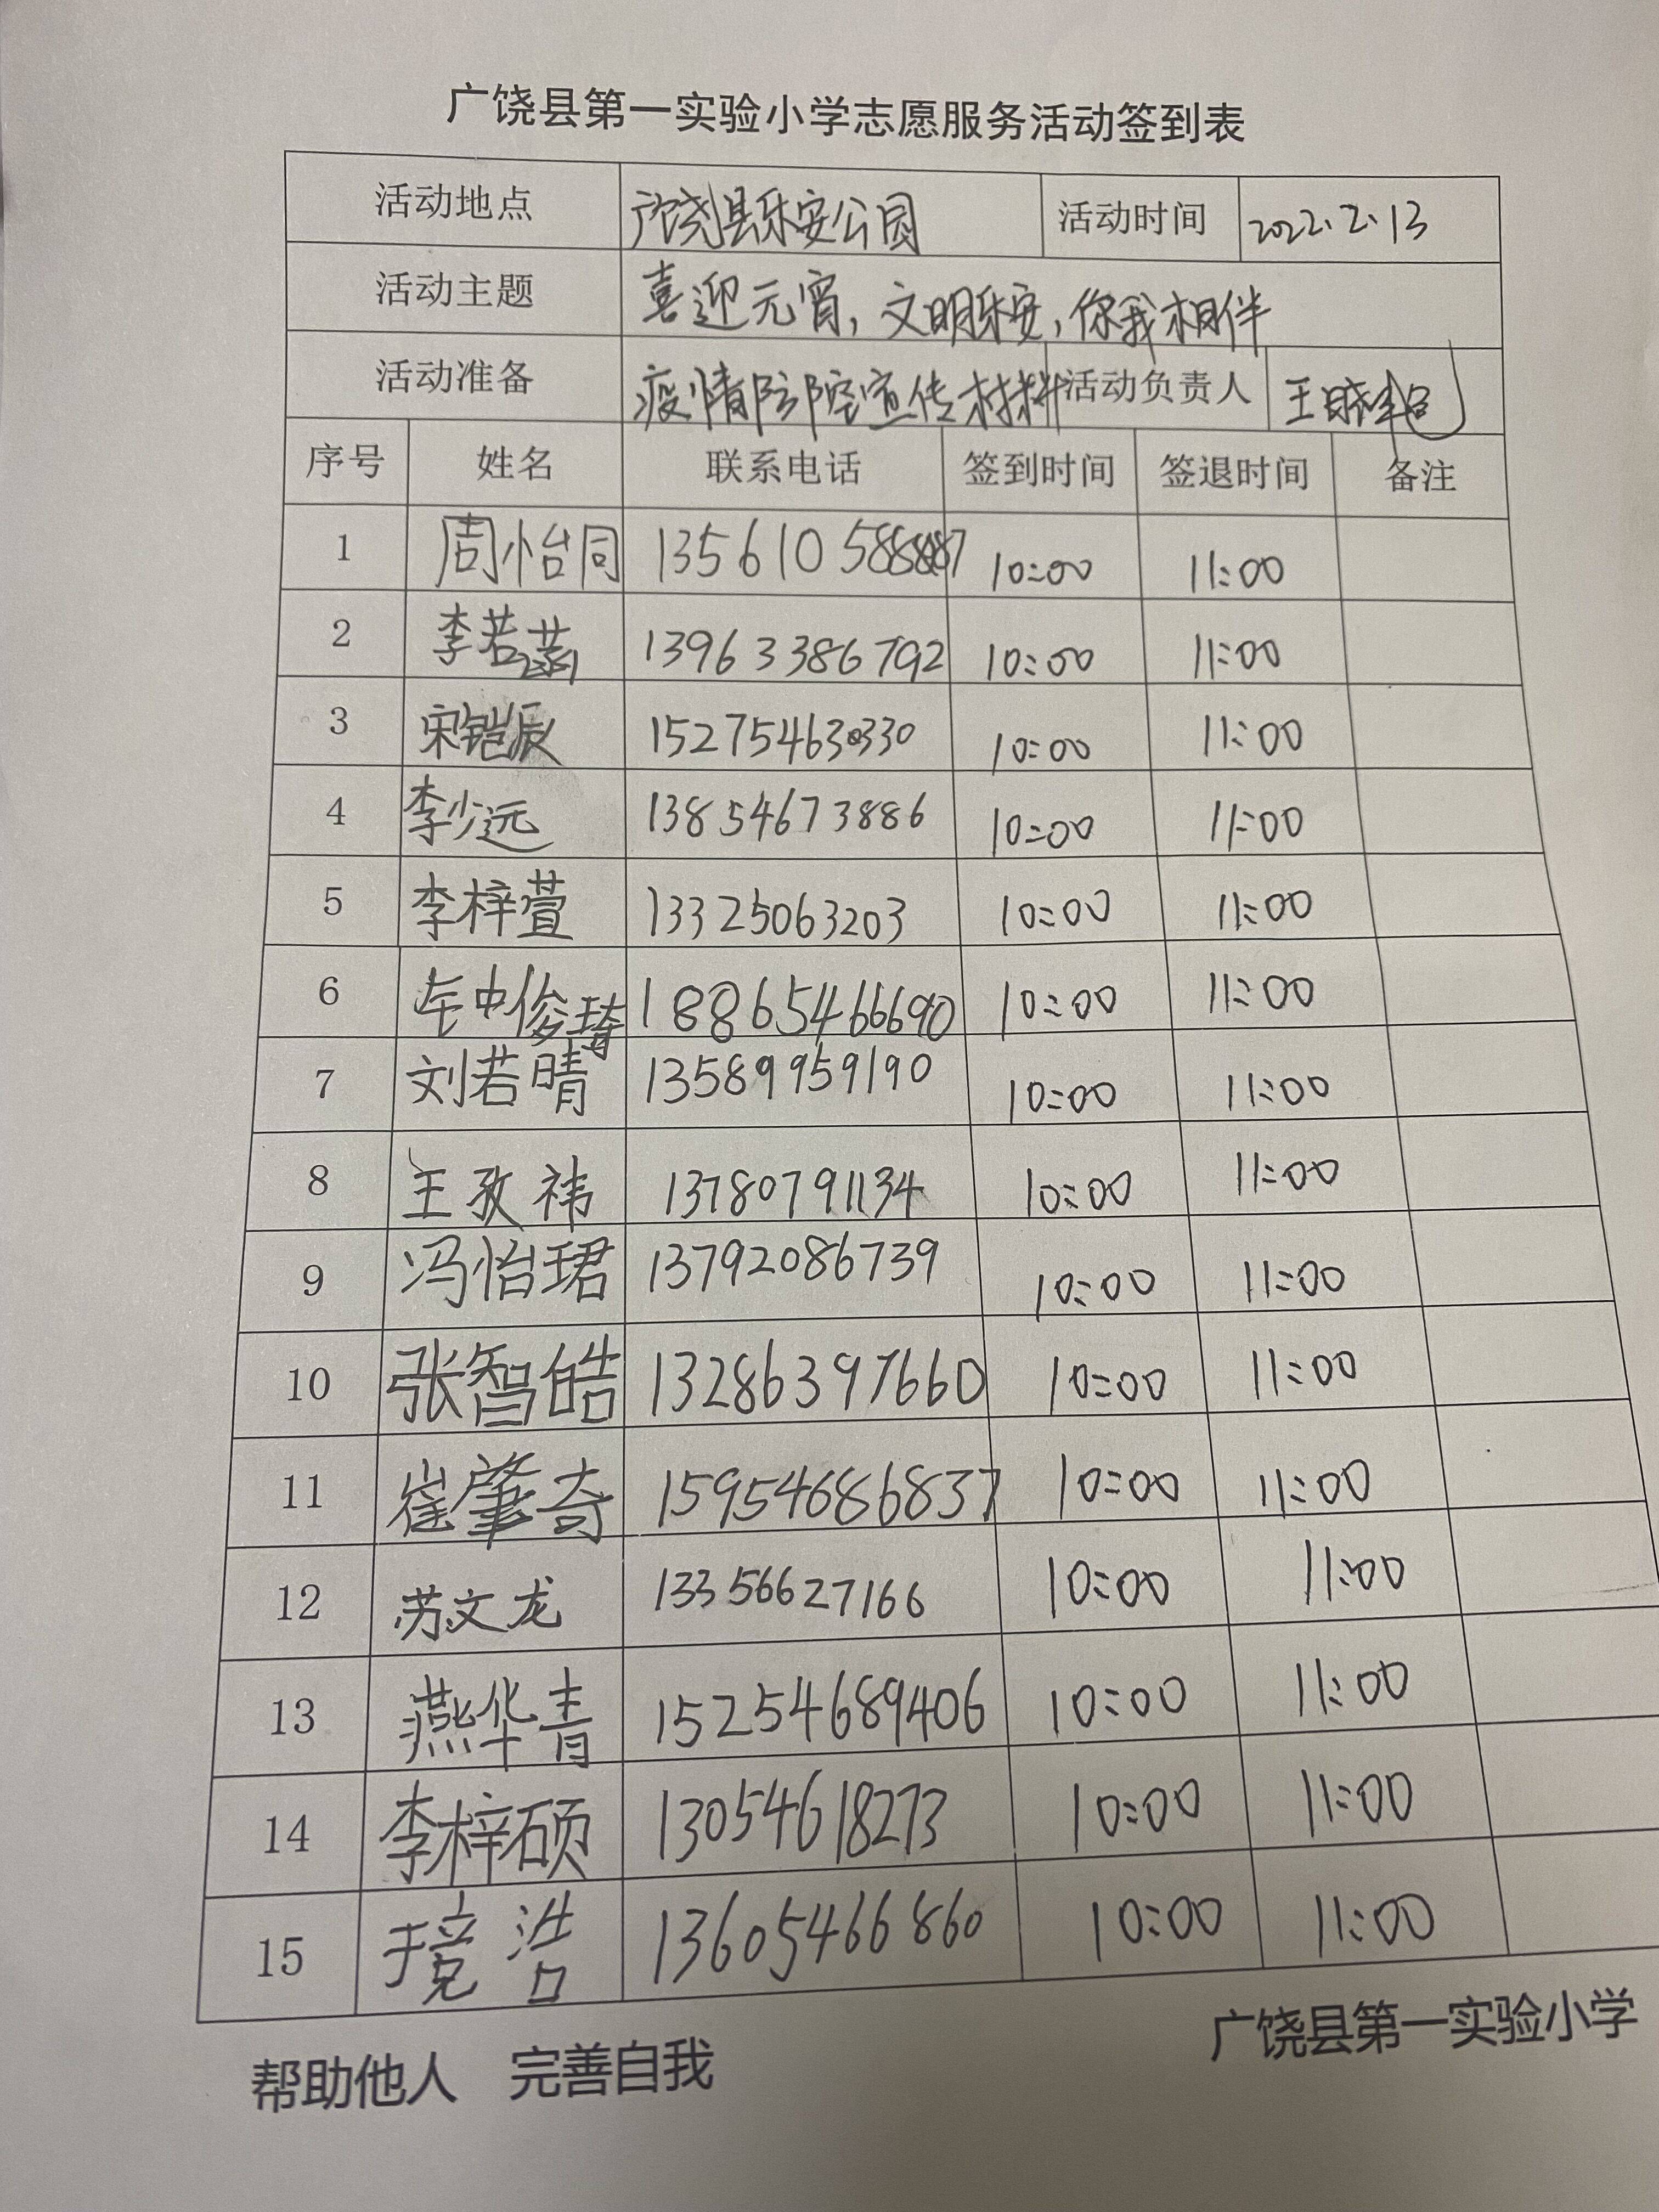 广饶县第一实验小学志愿服务活动签到表
活动地点 广饶县乐安公园 活动时间 2022.2.13
活动主题 喜迎元宵,文明乐安,你我相伴
活动准备 疫情防控宣传材料 活动负责人 王晓
序号 姓名 联系电话 签到时间 签退时间 备注
1 周怡同 10:00 11:00
2 李若菡 13963386792 10:00 11:00
3 宋铠辰 15275463330 10:00 11:00
4 李少远 13854673886 10:00 11:00
5 李梓萱 13325063203 10:00 11:00
6 俊琦 18865466690 10:00 11:00
7 刘若晴 13589959190 10:00 11:00
8 王孜祎 13780791134 10:00 11:00
9 冯怡珺 13792086739 10:00 11:00
10 张智皓 13286397660 10:00 11:00
11 崔肇奇 15954686837 10:00 11:00
12 苏文龙 13356627166 10:00 11:00
13 燕华青 15254689406 10:00 11:00
14 李梓硕 13054618273 10:00 11:00
15 浩 13605466860 10:00 11:00
帮助他人 完善自我 广饶县第一实验小学